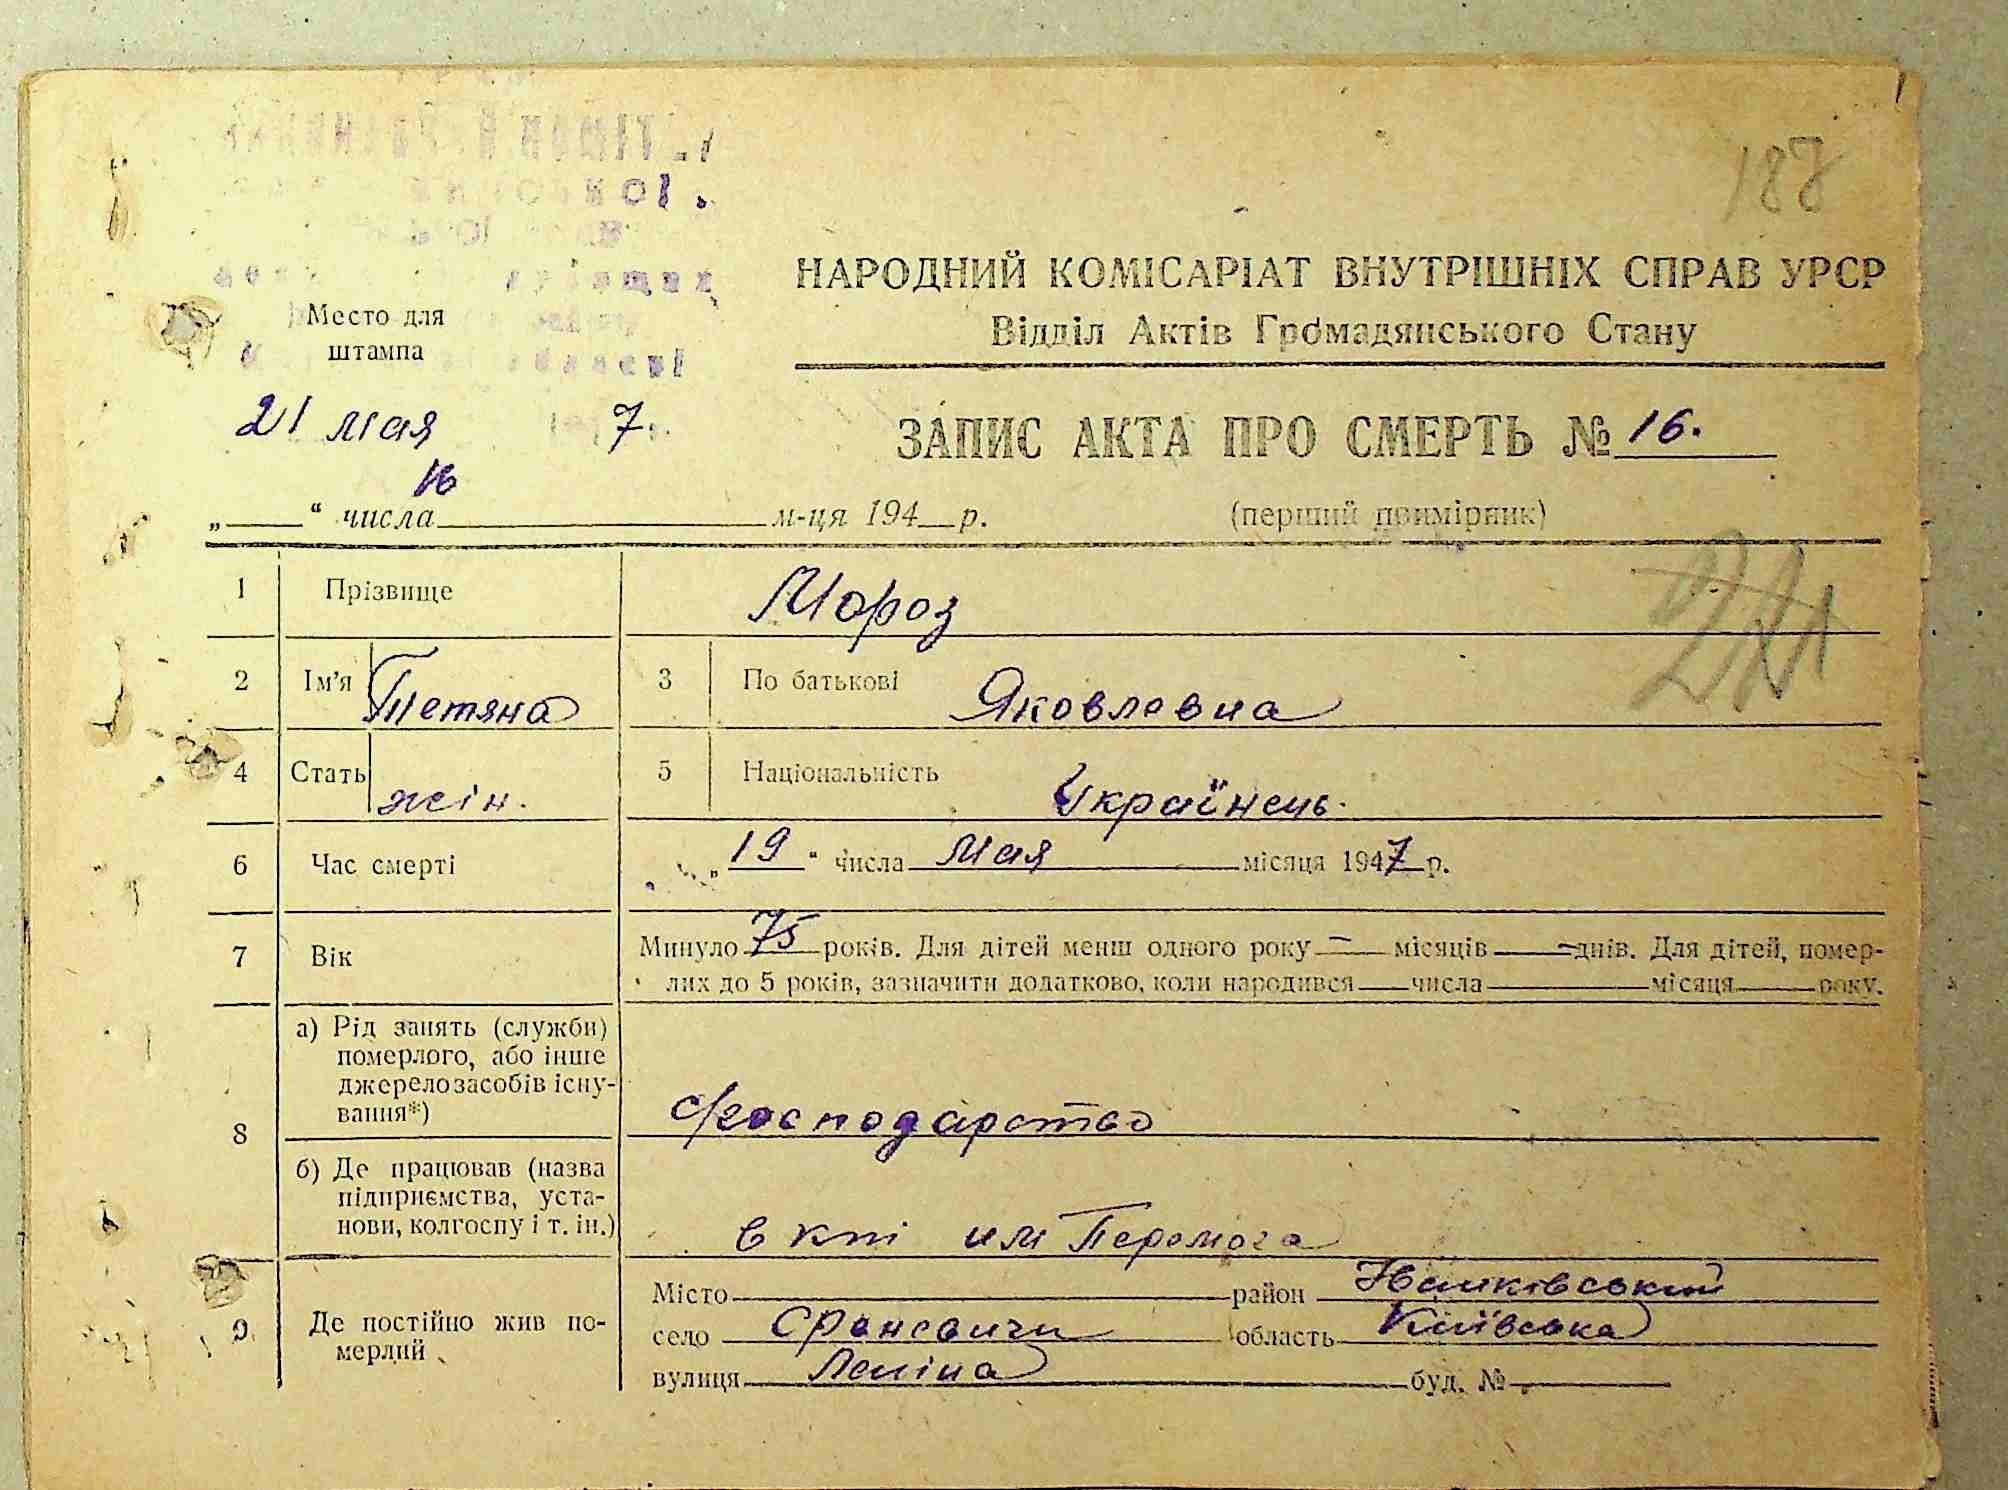 188
Место для
штампа
НАРОДНИЙ КОМІСАРІАТ ВНУТРІШНІХ СПРАВ УРСР
Відділ Актів Громадянського Стану
21 мая 7
ЗАПИС АКТА ПРО СМЕРТЬ № 16.
16
„ “ числа м-ця 194 р. (перший примірник)
1 Прізвище Мороз
2 Ім'я Тетяна 3 По батькові Яковлевна
4 Стать жін. 5 Національність Українець.
6 Час смерті „ 19 “ числа Мая місяця 1947 р.
7 Вік Минуло 75 років. Для дітей менш одного року — місяців — днів. Для дітей, помер-
лих до 5 років, зазначити додатково, коли народився числа місяця року.
8 а) Рід занять (служби)
померлого, або інше
джерело засобів існу-
вання*)
с/господарство
б) Де працював (назва
підприємства, уста-
нови, колгоспу і т. ін.)
в кті им Перемога
9 Де постійно жив по-
мерлий
Місто район
село область Київська
вулиця Леніна буд. №